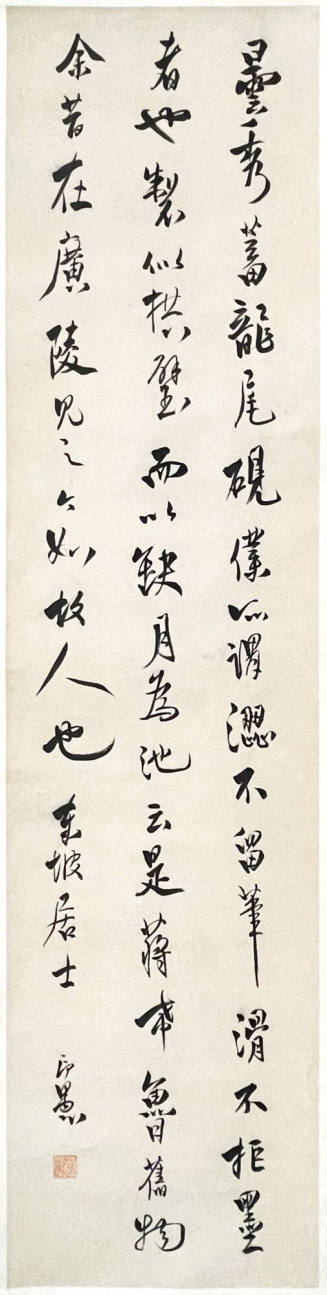 曇秀蓄龍尾硯僕所謂澀不留筆滑不拒墨
者也製似拱璧而以缺月為池云是蔣希魯舊物
余昔在廣陵見之今如故人也 東坡居士
印愚